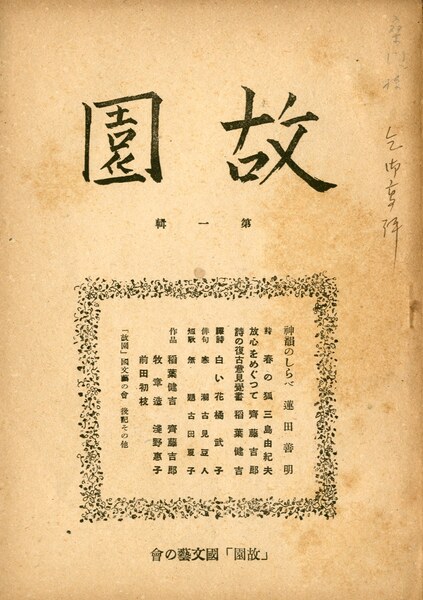 故園
第一輯
神韻のしらべ 蓮田善明
詩 春の狐 三島由紀夫
放心をめぐつて 齊藤吉郎
詩の復古意見覺書 稻葉健吉
譯詩 白い花 橘武子
俳句 寒潮 古見豆人
短歌 無題 古田夏子
作品 稻葉健吉 齊藤吉郎
牧章造 淺野惠子
前田初枝
「故園」國文藝の會 後記その他
「故園」國文藝の會